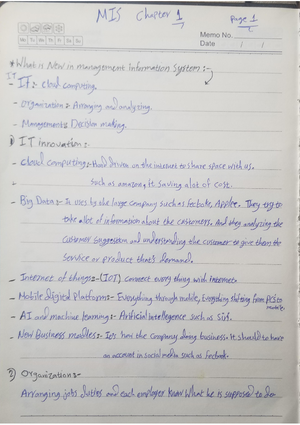 MIS Chapter 1
Page 1
Memo No.
Mo Tu We Th Fr Sa Su
Date / /
* What is New in management Information System :-
IT
- IT:- Cloud computing.
- Organization:- Arranging and analyzing.
- Management:- Decision making.
1) IT innovation:-
- Cloud computing:- Hard driven on the internet to share space with us.
- such as amazon, it saving alot of cost.
- Big Data:- It uses by the large company such as facebook, Apple. They try to
take alot of information about the customers. And they analyzing the
customer suggestion and understanding the customer to give them the
service or product that's demand.
- Internet of things:- (IOT) Connect every thing with Internet.
- Mobile digital Platforms:- Everything through mobile, Everything shifting from PCs to
mobile
- AI and machine learning:- Artificial Intelligence such as Siri.
- New Business modles:- Its how the company doing business. It should to have
an account in social media such as facebook.
2) Organization:-
Arranging jobs duties and each employee know what he is supposed to do